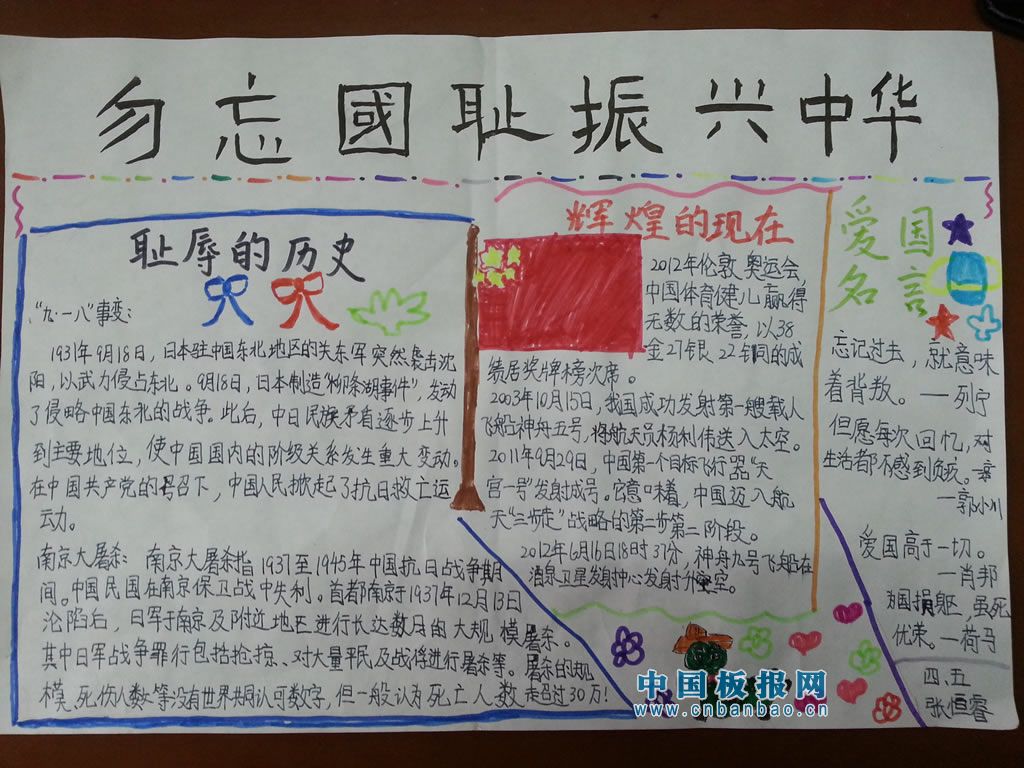 勿忘國耻振兴中华
耻辱的历史
"九·一八"事变:
1931年9月18日,日本驻中国东北地区的关东军突然袭击沈
阳,以武力侵占东北。9月18日,日本制造"柳条湖事件",发动
了侵略中国东北的战争。此后,中日民族矛盾逐步上升
到主要地位,使中国国内的阶级关系发生重大变动。
在中国共产党的号召下,中国人民掀起了抗日救亡运
动。
南京大屠杀:南京大屠杀指1937至1945年中国抗日战争期
间。中国民国在南京保卫战中失利。首都南京于1937年12月13日
沦陷后,日军于南京及附近地区进行长达数月的大规模屠杀。
其中日军战争罪行包括抢掠、对大量平民及战俘进行屠杀等。屠杀的规
模、死伤人数等没有世界共同认可数字,但一般认为死亡人数超过30万!
辉煌的现在
2012年伦敦奥运会,
中国体育健儿赢得
无数的荣誉,以38
金27银22铜的成
绩居奖牌榜次席。
2003年10月15日,我国成功发射第一艘载人
飞船神舟五号,将航天员杨利伟送入太空。
2011年9月29日,中国第一个目标飞行器"天
宫一号"发射成号。它意味着,中国迈入航
天"三步走"战略的第二步第二阶段。
2012年6月16日18时37分,神舟九号飞船在
酒泉卫星发射中心发射升空。
爱国
名言
忘记过去,就意味
着背叛。——列宁
但愿每次回忆,对
生活都不感到负疚。
—郭小川
爱国高于一切。
—肖邦
为国捐躯,虽死
优荣。—荷马
四、五
张恒睿
中国板报网
www.cnbanbao.cn